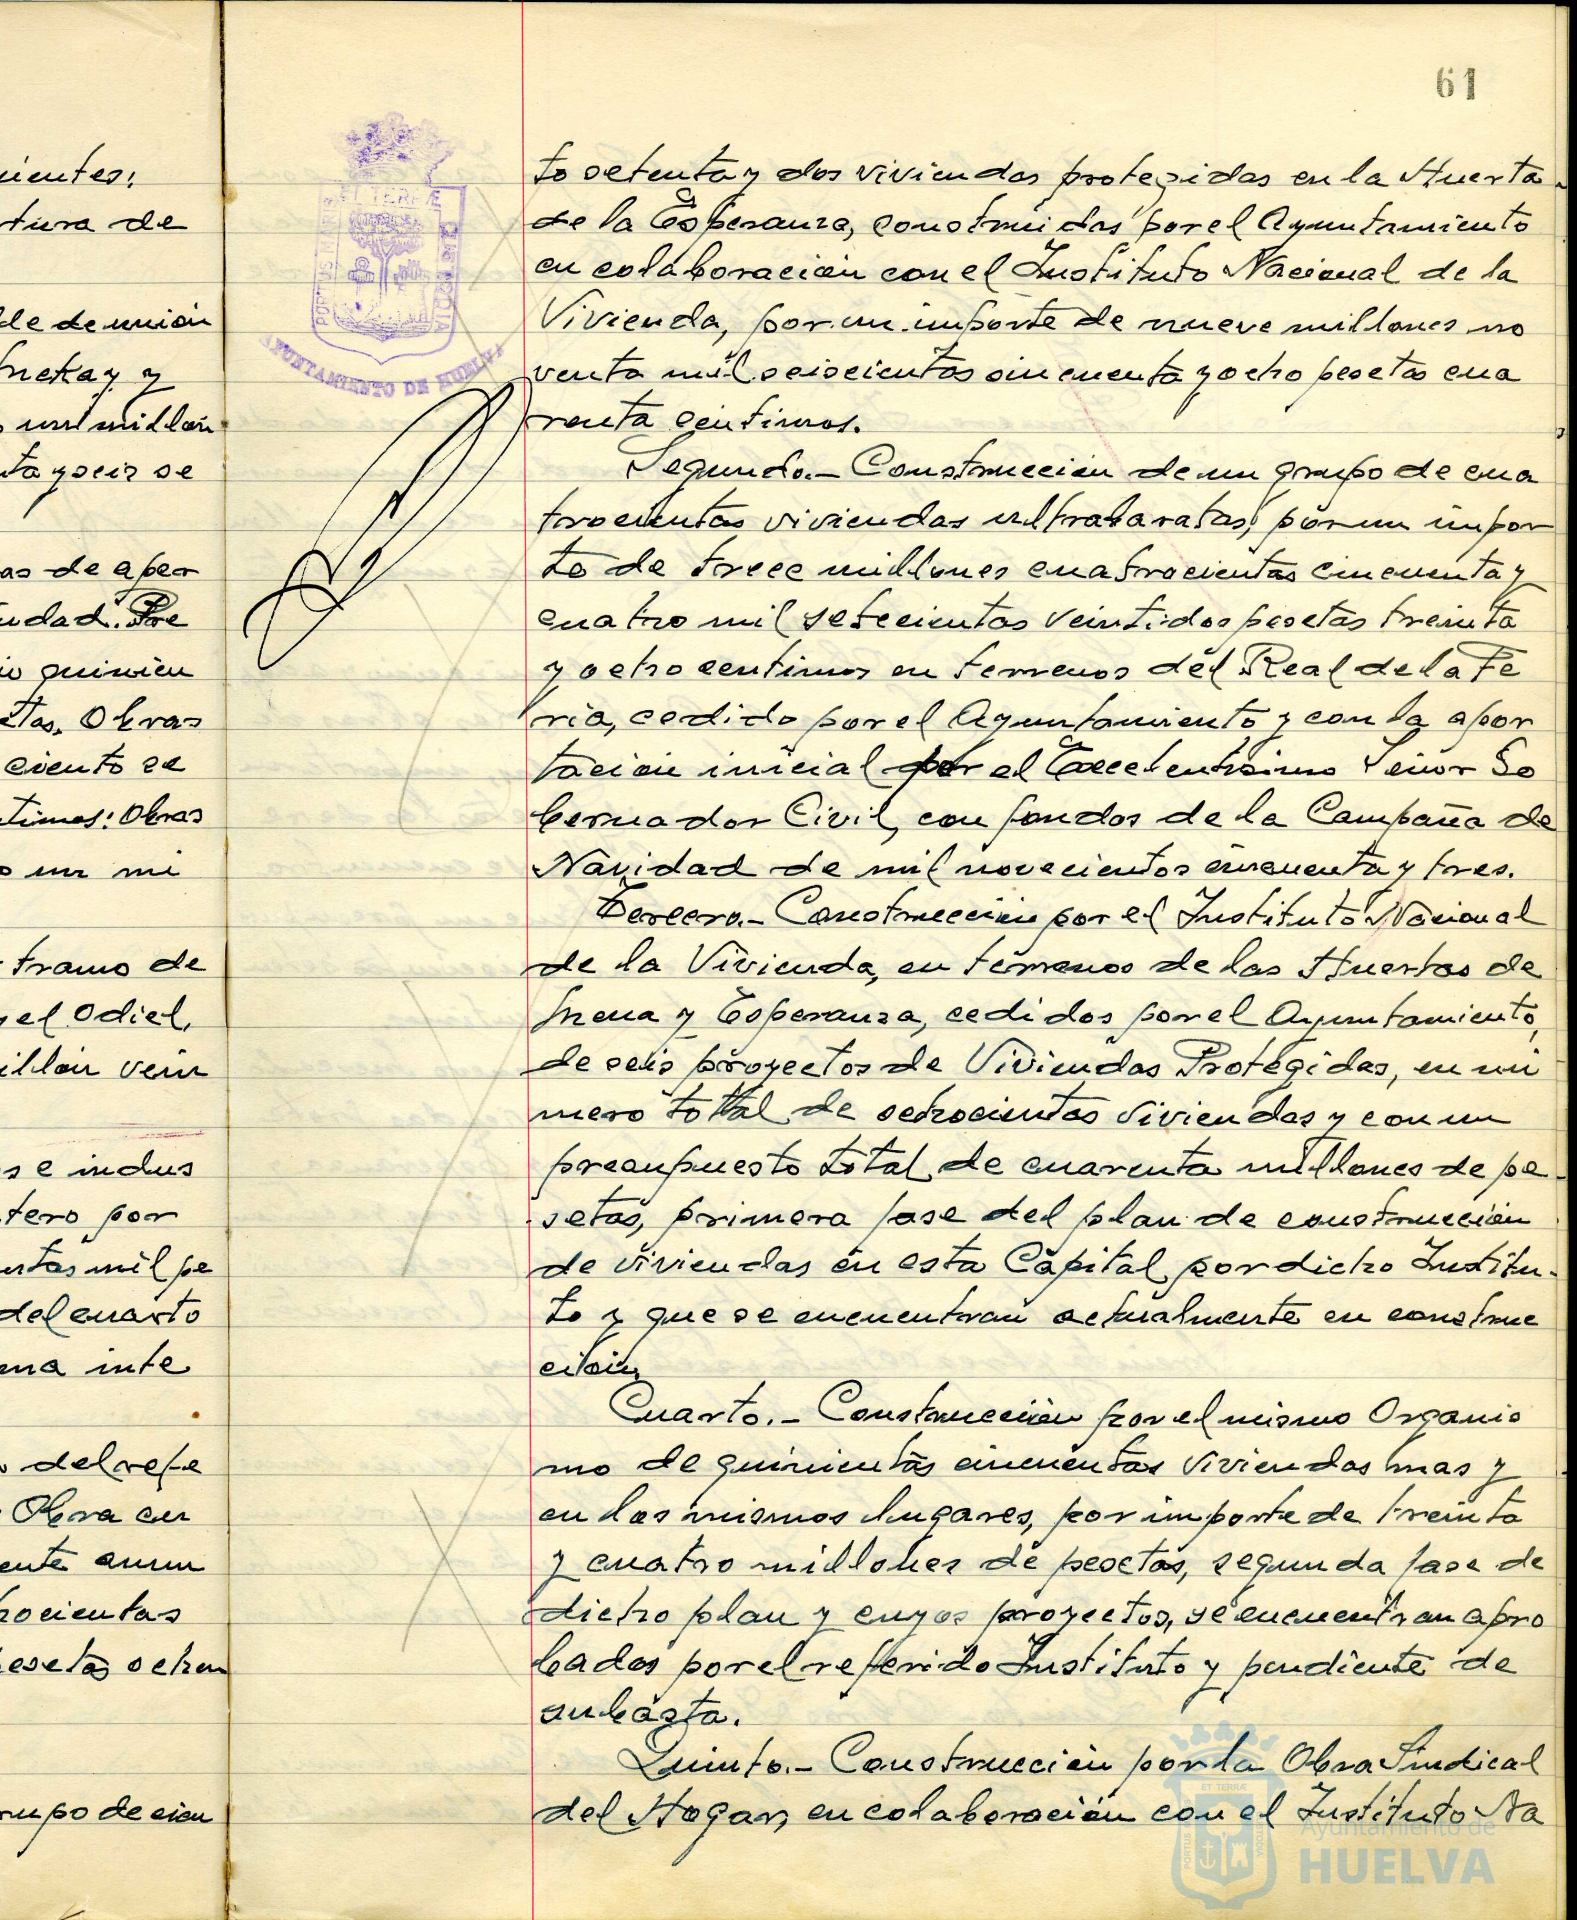 61
to setenta y dos viviendas protegidas en la Huerta
de la Esperanza, construidas por el Ayuntamiento
en colaboración con el Instituto Nacional de la
Vivienda, por un importe de nueve millones no
venta mil seiscientas cincuenta y ocho pesetas cua
renta centimos.
Segundo.- Construcción de un grupo de cua
trocientas viviendas ultrabaratas, por un impor
te de trece millones cuatrocientas cincuenta y
cuatro mil setecientas veintidos pesetas treinta
y ocho centimos en terrenos del Real de la Fe
ria, cedido por el Ayuntamiento y con la apor
tación inicial por el Excelentisimo Señor Go
bernador Civil, con fondos de la Campaña de
Navidad de mil novecientos cincuenta y tres.
Tercero.- Construcción por el Instituto Nacional
de la Vivienda, en terrenos de las Huertas de
Mena y Esperanza, cedidos por el Ayuntamiento,
de seis proyectos de Viviendas Protegidas, en nú
mero total de ochocientas viviendas y con un
presupuesto total de cuarenta millones de pe-
setas, primera fase del plan de construcción
de viviendas en esta Capital por dicho Institu-
to y que se encuentran actualmente en construc
ción.
Cuarto.- Construcción por el mismo Organis
mo de quinientas cincuentas viviendas mas y
en los mismos lugares, por importe de treinta
y cuatro millones de pesetas, segunda fase de
dicho plan y cuyos proyectos, se encuentran apro
bados por el referido Instituto y pendiente de
subasta.
Quinto.- Construcción por la Obra Sindical
del Hogar, en colaboración con el Instituto Na
cientes:
tura de
de de unión
y
un millón
ta y seis se
as de aper
udad. Pre
quinien
etas. Obras
ciento
timos: Obras
un mi
tramo de
y el Odiel,
illón vein
s e indus
tero por
entas mil pe
del cuarto
una inte
del refe
Obra en
ente
rocientas
pesetas ochen
rupo de cien
ET TERRÆ
PORTUS MARIS
CUSTODIA
AYUNTAMIENTO DE HUELVA
Ayuntamiento de
HUELVA